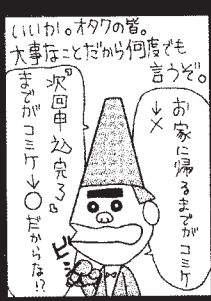 いいか。オタクの皆。
大事なことだから何度でも
言うぞ。
お家に帰るまでがコミケ
→×
『次回申込完了』
までがコミケ→○だからな!?
ビシ